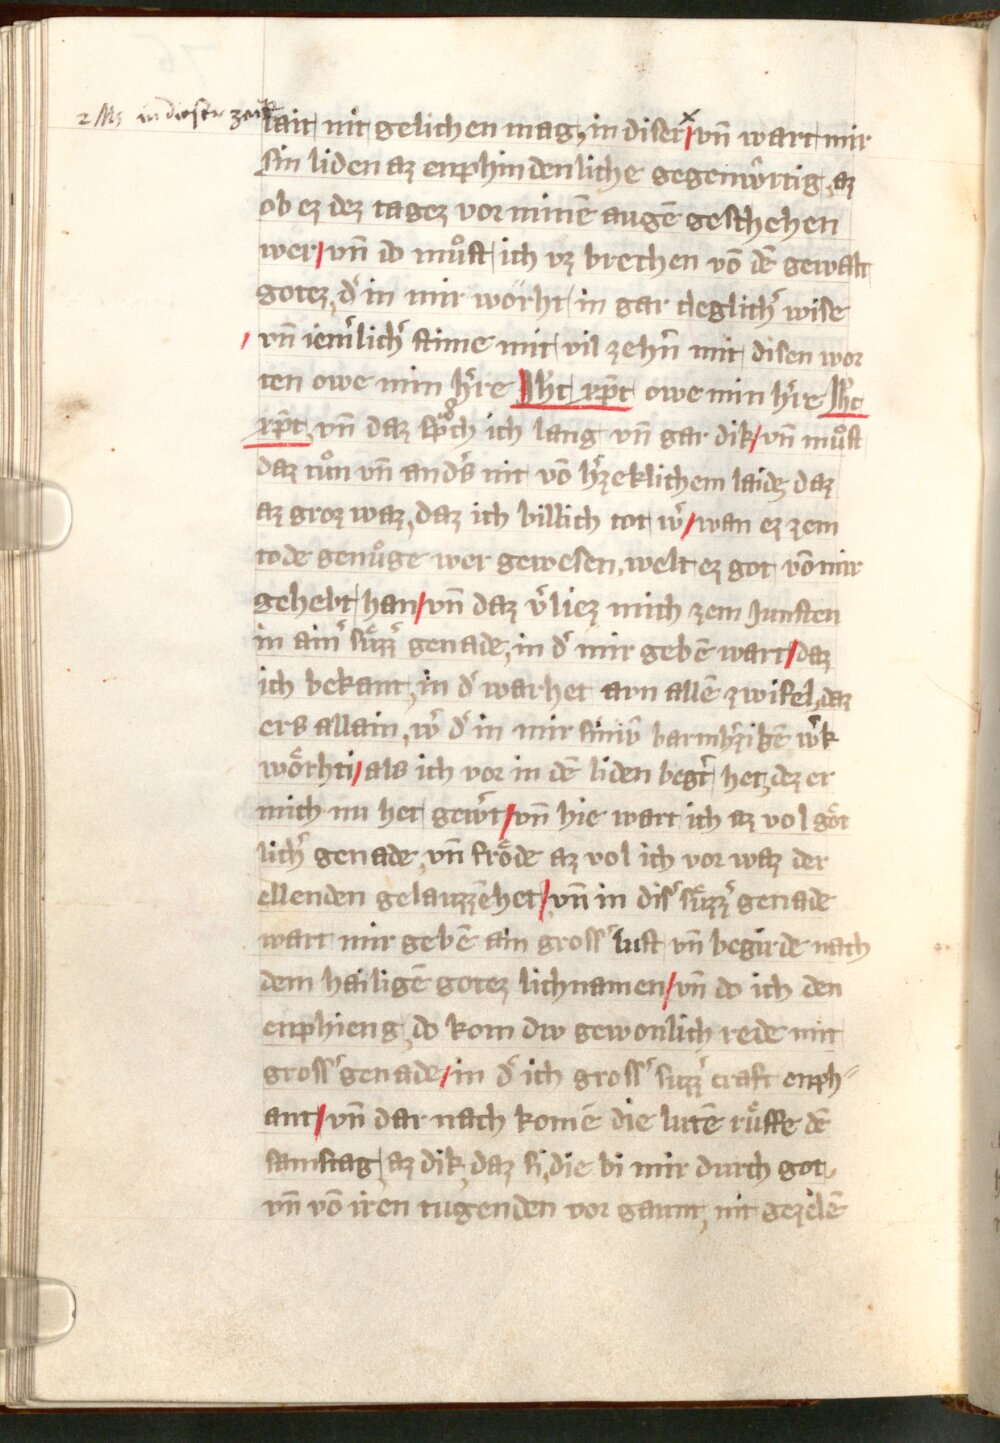 2 Ms in dieser zeit
lait nit gelichen mag, in diser / vn̄ wart mir
sin liden az enphindenliche gegenẘrtig, az
ob ez dez tagez vor minē augē geschehen
wer / vn̄ do můst ich vz brechen vō dē gewalt
gotez, d͛ in mir wörht in gar cleglich͛ wise
/ vn̄ iem͛lich͛ stime mit vil zeh͛n mit disen wor
ten owe min h͛re Jh̄c xp̄c owe min h͛re Jh̄c
xp̄c, vn̄ daz sp̊ch ich lang vn̄ gar dik / vn̄ můst
daz tůn vn̄ and͛s nit vō h͛zeklichem laide, daz
az groz waz, daz ich billich tot w͛ / wan ez zem
tode genůge wer gewesen, welt ez got vō mir
gehebt han / vn̄ daz v͛liez mich zem Junsten
in ain͛ sůzz͛ genade, in d͛ mir gebē wart / daz
ich bekant, in d͛ warhet arn allē zwifel, daz
ers allain, w͛ d͛ in mir siniv̄ barmh͛zikē w͛k
wörhti / als ich vor in dē liden beg͛t het, dez er
mich nu het gew͛t / vn̄ hie wart ich az vol göt
lich͛ genade, vn̄ fröde az vol ich vor waz der
ellenden gelauzzēhet / vn̄ in dis͛ sůzz͛ genade
wart mir gebē ain gross͛ lust vn̄ begirde nach
dem hailigē gotez lichnamen / vn̄ do ich den
enphieng, do kom diw gewonlich rede mit
gross͛ genade / in d͛ ich gross͛ suzz͛ craft enph⸗
ant / vn̄ dar nach komē die lutē růffe dē
samstag, az dik, daz si, die bi mir durch got,
vn̄ vō iren tugenden vor gaunt, nit gezelē